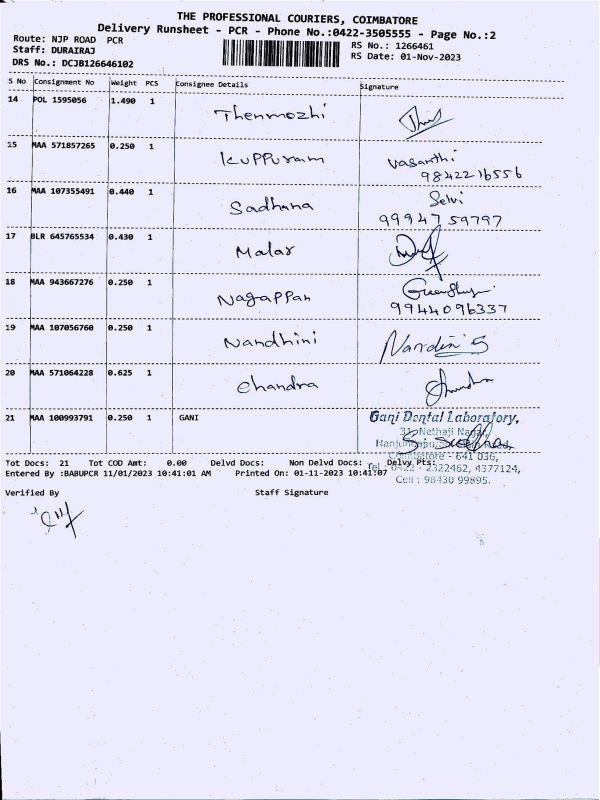 THE PROFESSIONAL COURIERS, COIMBATORE
Delivery Runsheet - PCR - Phone No.:0422-3505555 - Page No.:2
Route: NJP ROAD PCR
RS No.: 1266461
Staff: DURAIRAJ
RS Date: 01-Nov-2023
DRS No.: DCJB126646102
S No Consignment No Weight PCS Consignee Details Signature
14 POL 1595056 1.490 1 Thenmozhi
15 MAA 571857265 0.250 1 Kuppuram Vasanthi
9842216556
16 MAA 107355491 0.440 1 Sadhana Selvi
99947 59797
17 BLR 645765534 0.430 1 Malar
18 MAA 943667276 0.250 1 Nagappan
9944096337
19 MAA 107056760 0.250 1 Nandhini Nandini S
20 MAA 571064228 0.625 1 Chandra
21 MAA 100993791 0.250 1 GANI Gani Dental Laboratory,
31, Nethaji Nagar,
Coimbatore - 641 036,
Tel : 0422 - 2322462, 4377124,
Cell : 98430 99895.
Tot Docs: 21 Tot COD Amt: 0.00 Delvd Docs: Non Delvd Docs: Delvy Pts:
Entered By :BABUPCR 11/01/2023 10:41:01 AM Printed On: 01-11-2023 10:41:07
Verified By Staff Signature